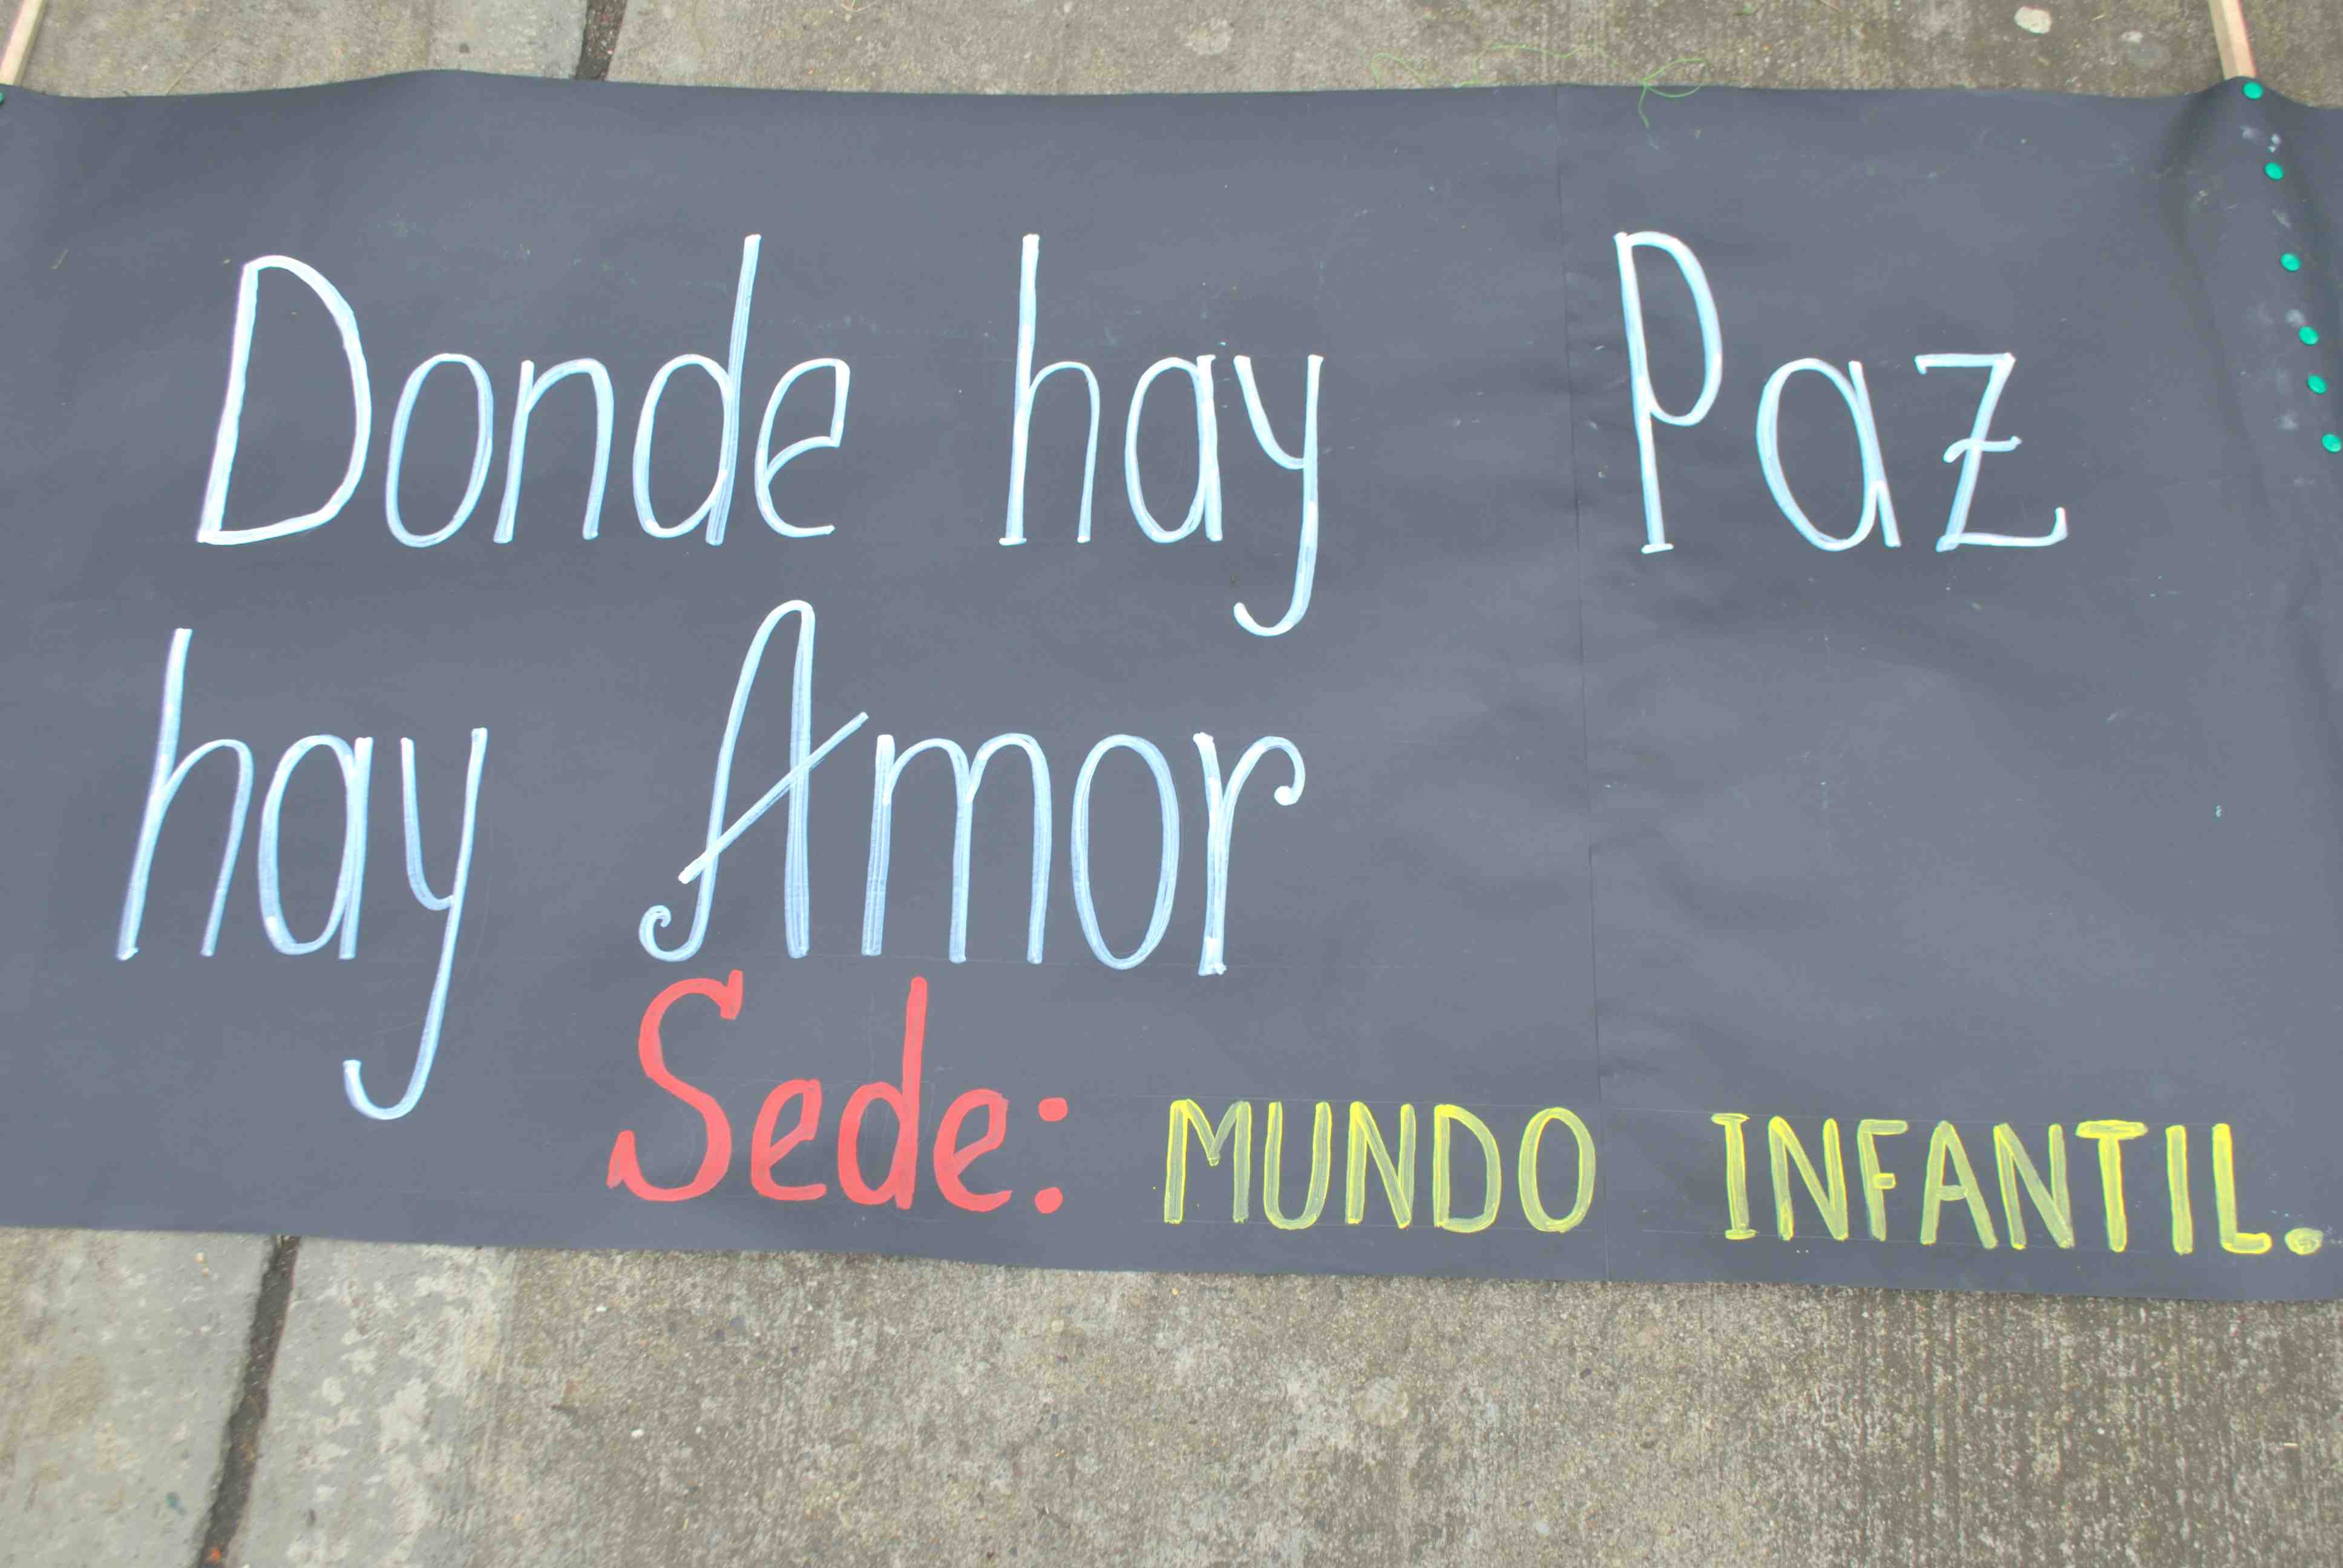 Donde hay Paz
hay Amor
Sede: MUNDO INFANTIL.